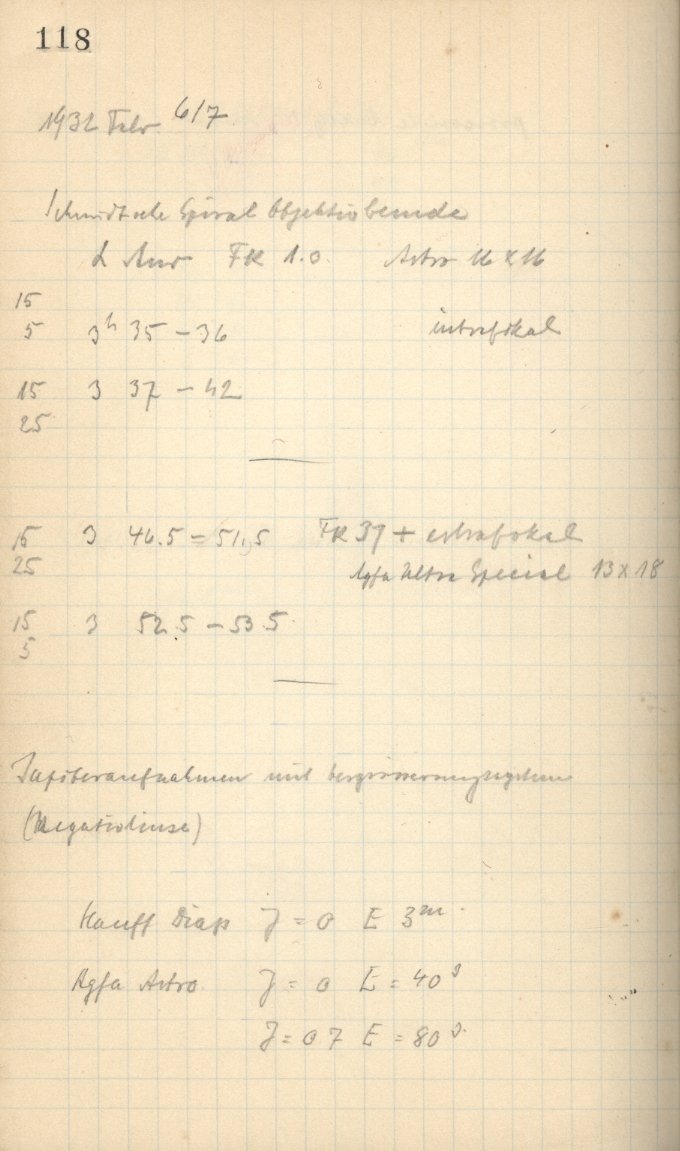 118
1932 Febr. 6/7
Schmidtsche Spiral Objektivblende
α Aur FK 1.0. Astro 16 x 16
15
5 3h 35 – 36 intrafokal
15 3 37 – 42
25
15 3 46.5 – 51.5 FK 37 + extrafokal
25 Agfa Ultra Special 13 x 18
15 3 52.5 – 53.5
5
Jupiteraufnahmen mit Vergrösserungssystem
(Negativlinse)
Hauff Diap J = 0 E 3m.
Agfa Astro. J = 0 E = 40s
J = 07 E = 80s.